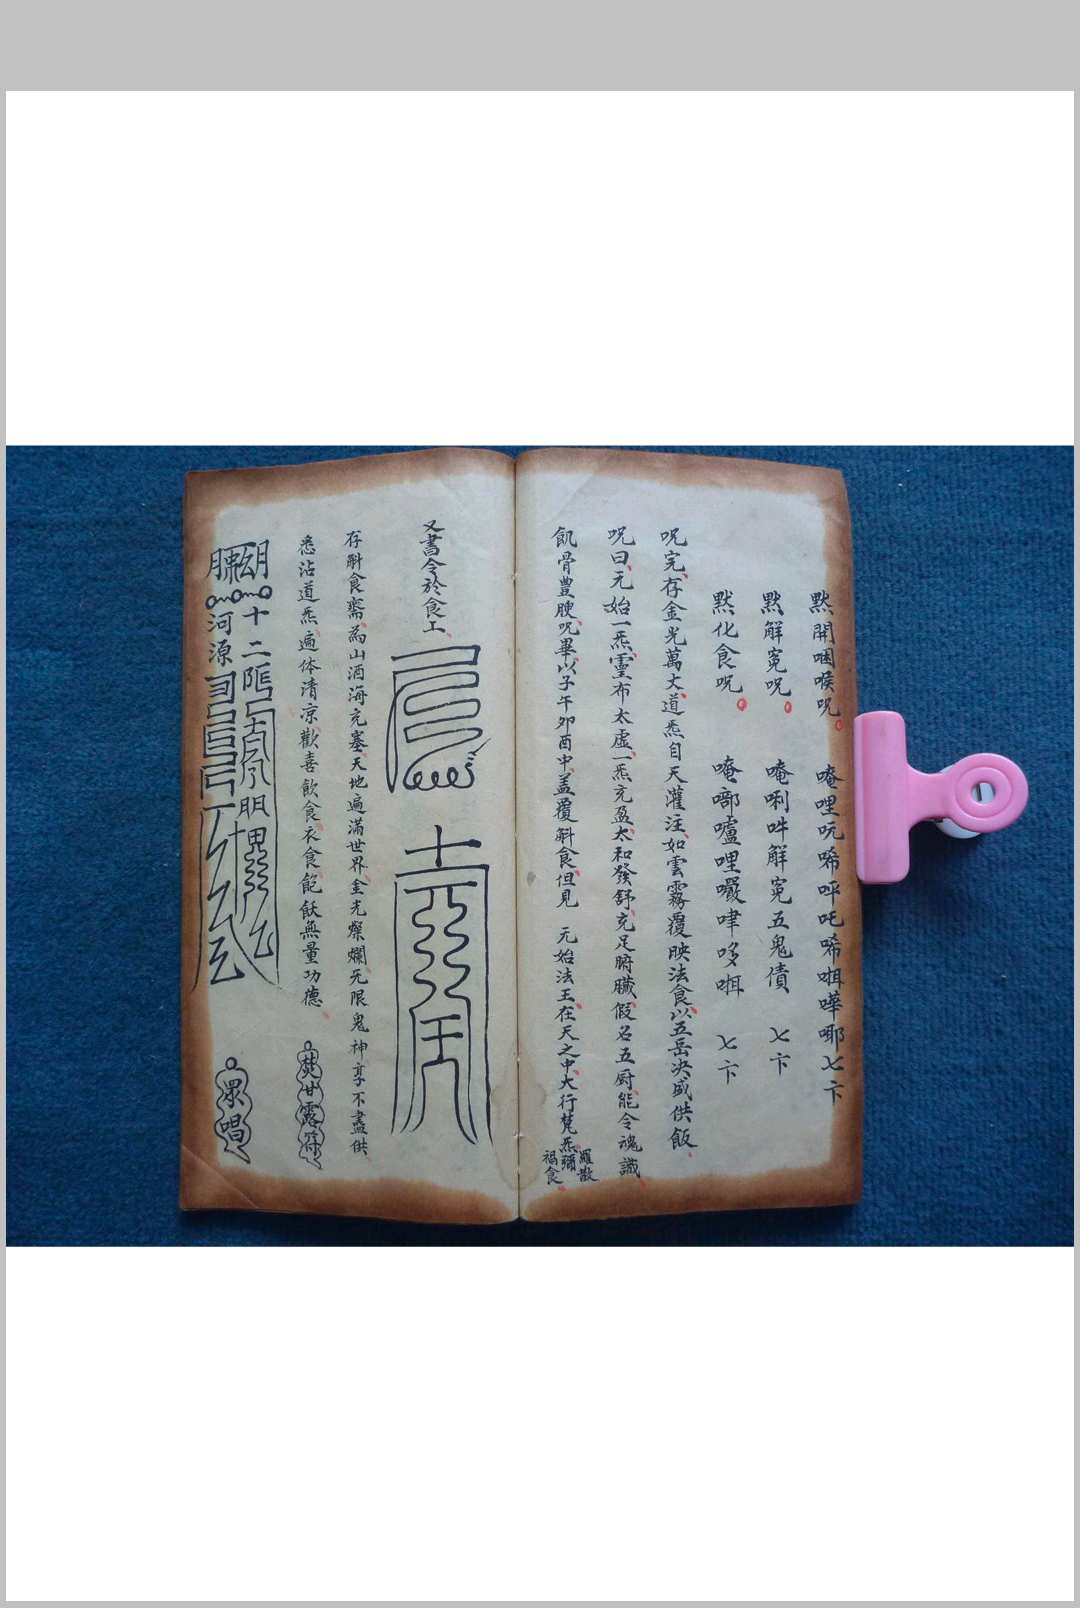 黙開咽喉呪 唵哩吭唏呼吒唏啣嘩哪七卞
黙解寃呪 唵唎吽解寃五鬼債 七卞
黙化食呪 唵啣嚧哩囖哞哆啣 七卞
呪完存金光萬丈道炁自天灌注如雲霧覆映法食以五岳决盛供飯
呪曰元始一炁靈布太虛一炁充盈太和發舒充足腑臟假名五厨能令魂識
飢骨豐腴呪畢以子午卯酉中盖覆斛食但見 元始法王在天之中大行梵炁彌羅散禍食
又書令於食上
存斛食齋為山酒海充塞天地遍滿世界金光燦爛无限鬼神享不盡供
悉沾道炁遍体清凉歡喜飲食衣食飽飫無量功德 焚甘露符
十二
河源
眾唱